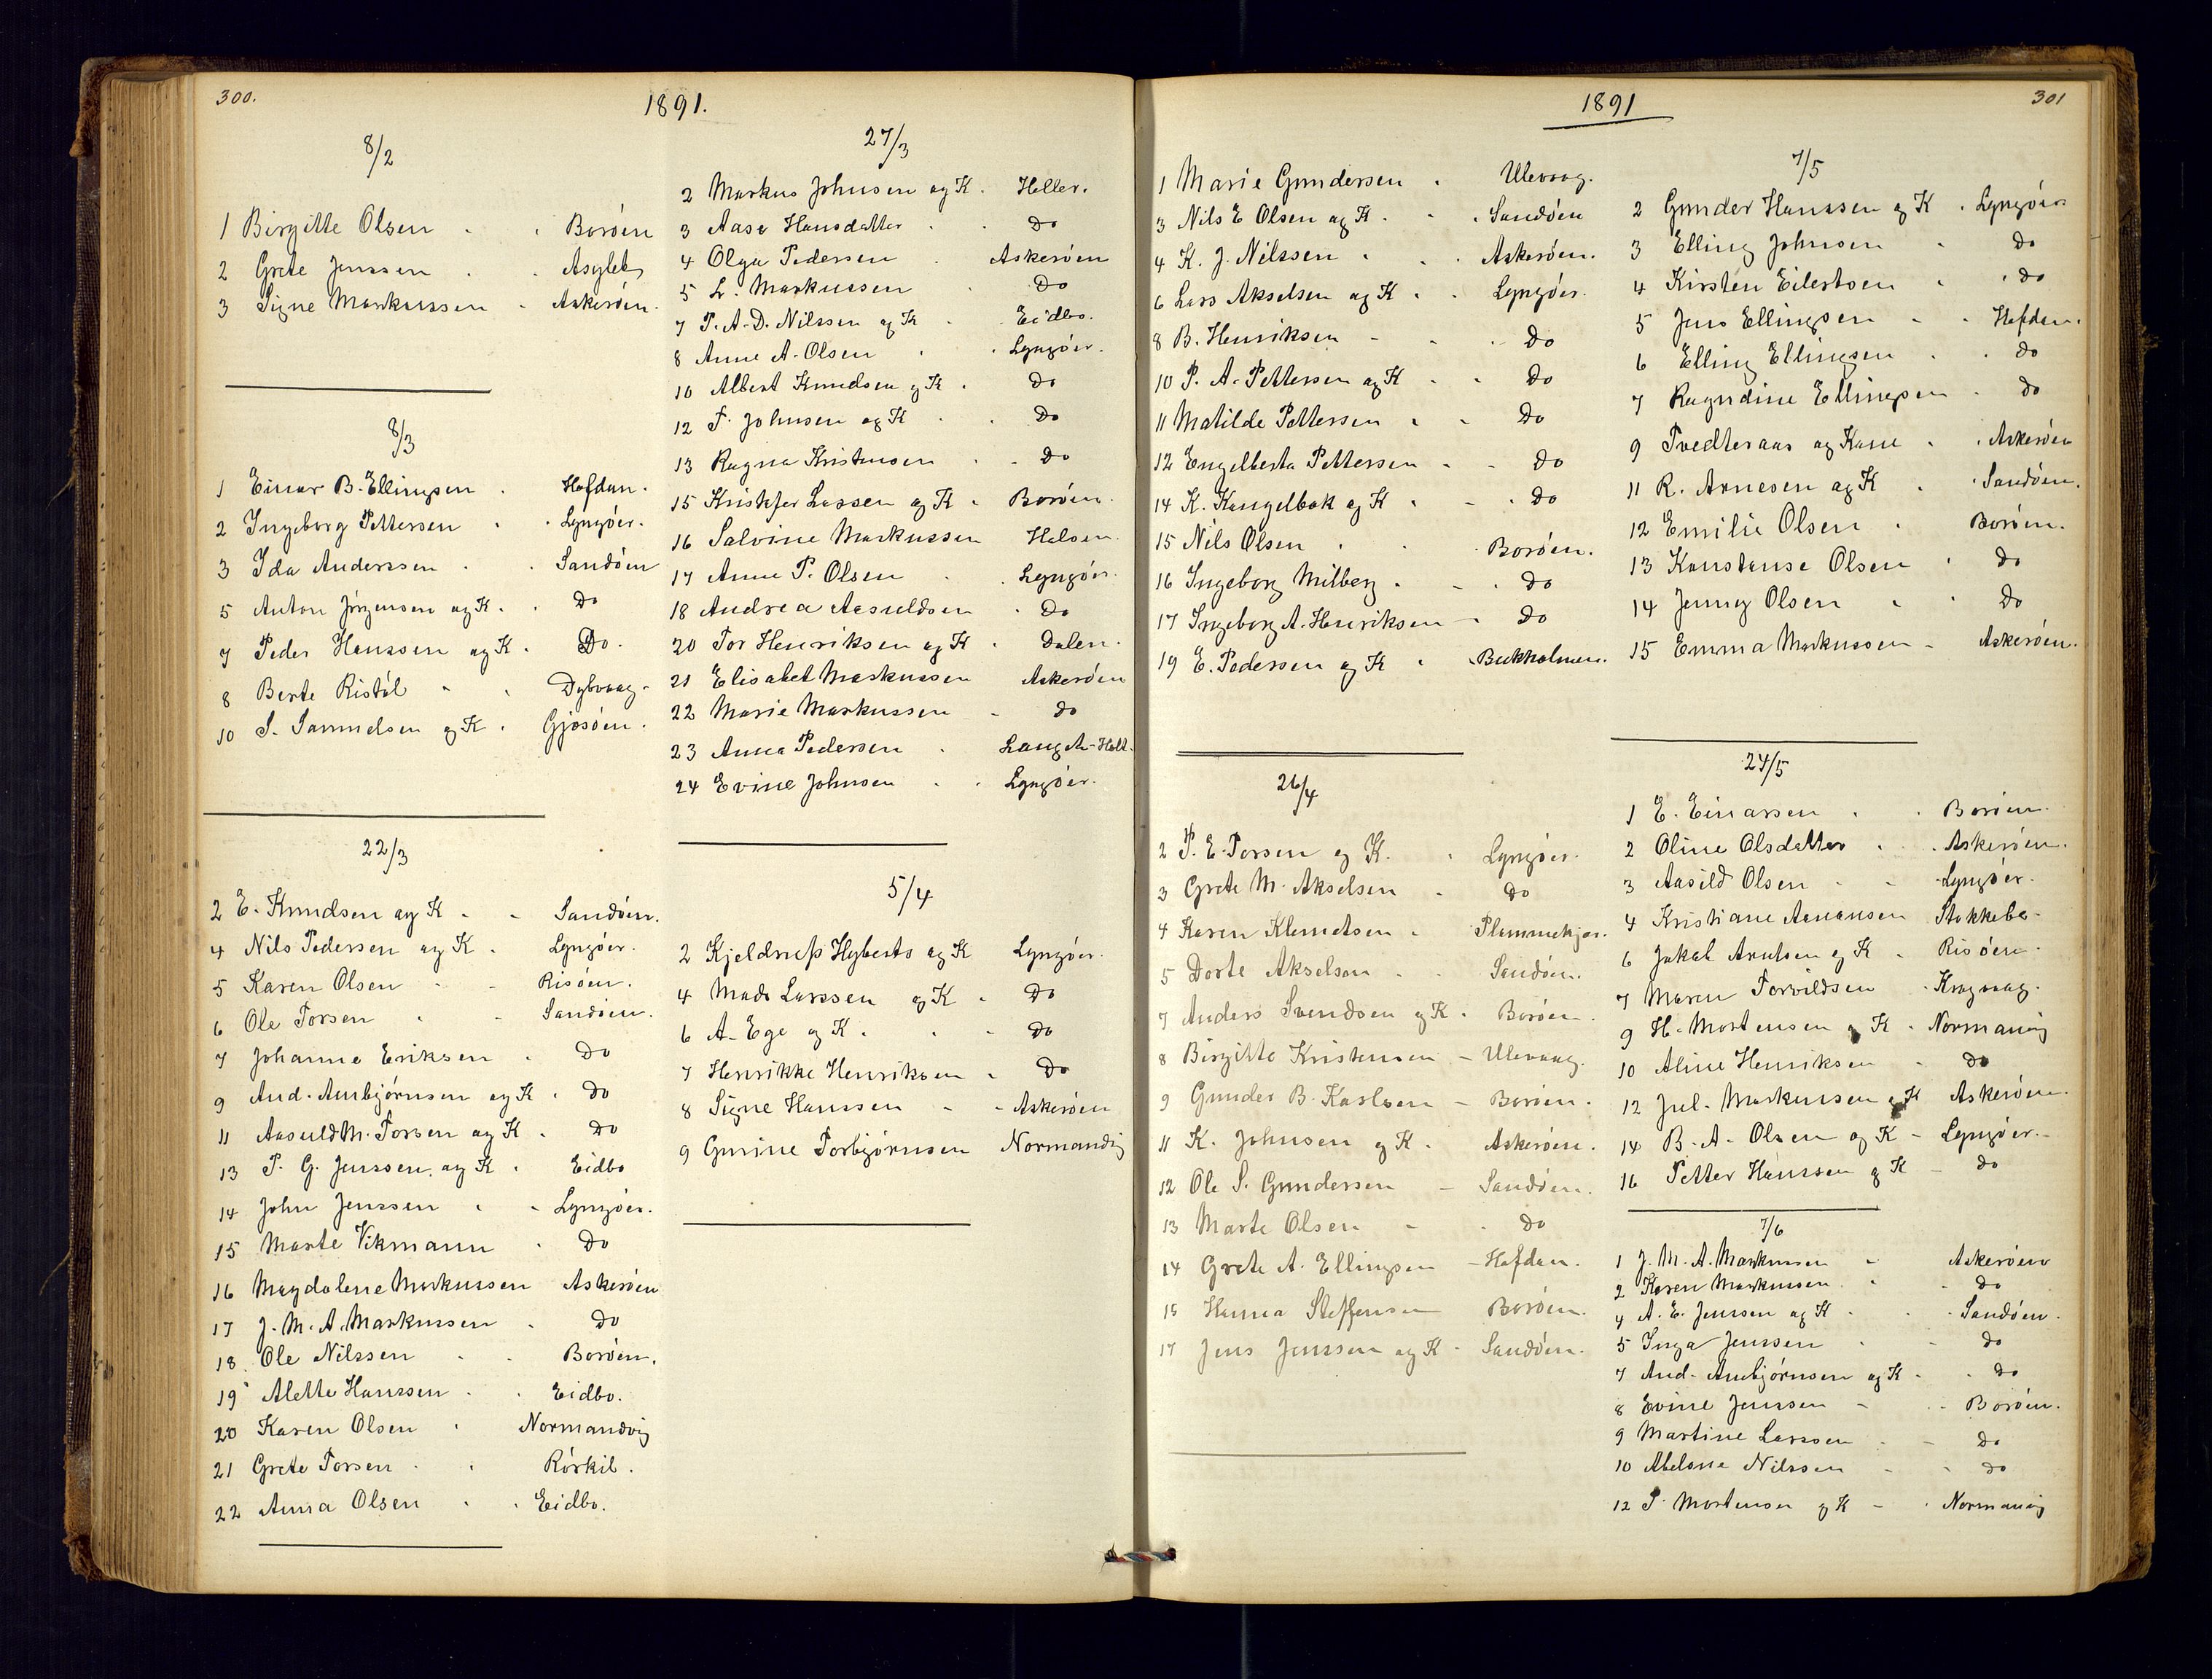 300.
1891.
8/2
1 Birgitte Olsen Borøen
2 Grete Jenssen Asylet
3 Signe Markussen Askerøen.
8/3
1 Einar B. Ellingsen Hafdan.
2 Ingeborg Pettersen Lyngøer.
3 Ida Anderssen Sandøen
5 Anton Jörgensen og K. Do
7 Peder Hanssen og K. Do.
8 Berte Ristöl Dybvaag.
10 S. Samuelsen og K. Gjesøen.
22/3
2 E. Knudsen og K. Sandøen.
4 Nils Pedersen og K. Lyngøer.
5 Karen Olsen Risøen.
6 Ole Torsen Sandøen.
7 Johanne Eriksen Do
9 And. Ambjørnsen og K. Do
11 Aasuld M. Torsen og K. Do
13 P. G. Jenssen og K. Eidbo
14 John Jenssen Lyngøer.
15 Marte Vikmann Do
16 Magdalene Markussen Askerøen
17 J. M. A. Markussen Do
18 Ole Nilssen Borøen.
19 Alette Hanssen Eidbo.
20 Karen Olsen Normandvig
21 Grete Torsen Rörkil.
22 Anna Olsen Eidbo.
27/3
2 Markus Johnsen og K. Holler.
3 Aase Hansdatter Do
4 Olga Pedersen Askerøen
5 L. Markussen Do
7 P. A. D. Nilssen og K Eidbo.
8 Anne A. Olsen Lyngøer.
10 Albert Knudsen og K. Do
12 T. Johnsen og K Do
13 Ragna Kristensen Do
15 Kristofer Lassen og K. Borøen.
16 Salvine Markussen Holsen.
17 Anne P. Olsen Lyngøer
18 Andrea Aasuldsen Do
20 Tor Henriksen og K. Dalen.
21 Elisabet Markussen Askerøen
22 Marie Markussen do
23 Anna Pedersen Lang A. Holt.
24 Evine Johnsen Lyngøer.
5/4
2 Kjeldrup Hyberts og K Lyngøer.
4 Mads Larssen og K. Do
6 A. Ege og K. Do
7 Henrikke Henriksen Do
8 Signe Hanssen Askerøen
9 Gurine Torbjørnsen Normandvig
1891
301
1 Marie Gundersen Ulevaag.
3 Nils E Olsen og K. Sandøen
4 K. J. Nilssen Askerøen.
6 Lars Akselsen og K. Lyngøer.
8 B. Henriksen Do
10 P. A. Pettersen og K Do
11 Matilde Pettersen Do
12 Engelberta Pettersen Do
14 K. Kangelbak og K Do
15 Nils Olsen Borøen.
16 Ingeborg Milberg Do
17 Ingeborg A. Henriksen Do
19 E. Pedersen og K. Bukholmen.
26/4
2 P. E. Torsen og K. Lyngøer.
3 Grete M. Akselsen Do
4 Karen Klemetsen Plommekjær.
5 Dorte Akselsen Sandøen.
7 Anders Svendsen og K. Borøen.
8 Birgitte Kristensen Ulevaag.
9 Gunder B. Karlsen Borøen.
11 K. Johnsen og K. Askerøen.
12 Ole S. Gundersen Sandøen.
13 Marte Olsen Do
14 Grete A. Ellingsen Hafdan.
15 Hanna Steffensen Borøen.
17 Jens Jenssen og K. Sandøen.
7/5
2 Gunder Hanssen og K. Lyngøer
3 Elling Johnsen Do
4 Kirsten Eilertsen Do
5 Jens Ellingsen Hafdan.
6 Elling Ellingsen Do
7 Ragndine Ellingsen Do
9 Tvedteraas og Kone Askerøen
11 R. Arnesen og K Sandøen.
12 Emilie Olsen Borøen.
13 Konstanse Olsen Do
14 Jenny Olsen Do
15 Emma Markussen Askerøen.
24/5
1 E. Einarsen Borøen.
2 Oline Olsdatter Askerøen.
3 Aasild Olsen Lyngøer.
4 Kristiane Aanonsen Stokkebo.
6 Jakob Arntsen og K. Risøen.
7 Maren Torvildsen Kragvaag.
9 H. Mortensen og K. Normanvig
10 Aline Henriksen Do
12 Jul. Markussen og K Askerøen.
14 B. A. Olsen og K Lyngøer.
16 Petter Hanssen og K Do
7/6
1 J. M. A. Markussen Askerøen
2 Karen Markussen. Do
4 A. E. Jenssen og K. Sandøen.
5 Inga Jenssen Do
7 And. Ambjørnsen og K. Do
8 Evine Jenssen Borøen.
9 Martine Larssen Do
10 Abelone Nilssen Do
12 P. Mortensen og K Normanvig